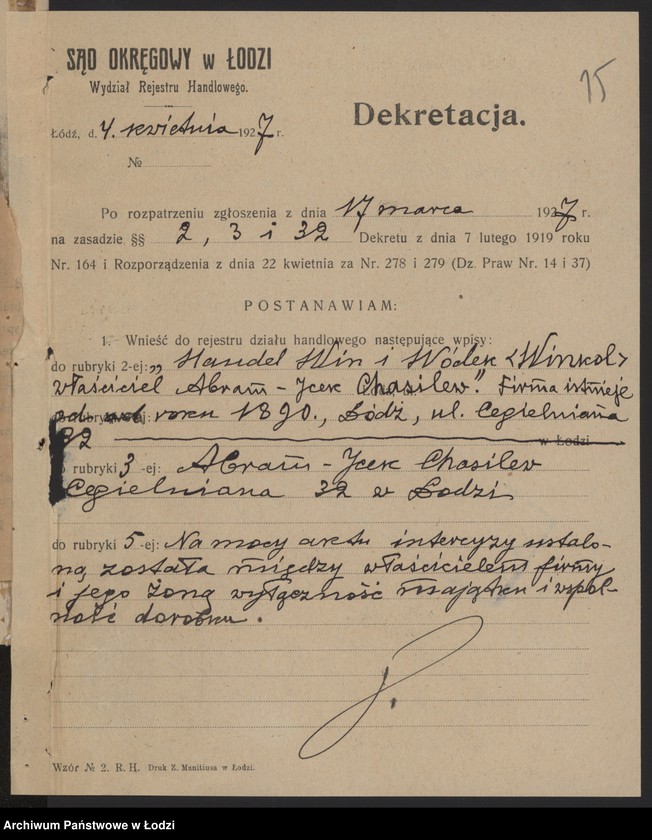 15
SĄD OKRĘGOWY w ŁODZI
Wydział Rejestru Handlowego.
Dekretacja.
Łódź, d. 4. kwietnia 1927 r.
№
Po rozpatrzeniu zgłoszenia z dnia 17 marca 1927 r.
na zasadzie §§ 2, 3 i 32 Dekretu z dnia 7 lutego 1919 roku
Nr. 164 i Rozporządzenia z dnia 22 kwietnia za Nr. 278 i 279 (Dz. Praw Nr. 14 i 37)
POSTANAWIAM:
1. Wnieść do rejestru działu handlowego następujące wpisy:
do rubryki 2-ej: „Handel Win i Wódek <Winkol>
właściciel Abram-Icek Chasilew." Firma istnieje
od roku 1890., Łódź, ul. Cegielniana
32 w Łodzi
do rubryki 3-ej: Abram-Icek Chasilew
Cegielniana 32 w Łodzi
do rubryki 5-ej: Na mocy aktu intercyzy ustalo-
ną została między właścicielem firmy
i jego żoną wyłączność majątku i wspól-
ność dorobku.
Wzór № 2. R. H. Druk Z. Manitiusa w Łodzi.
Archiwum Państwowe w Łodzi